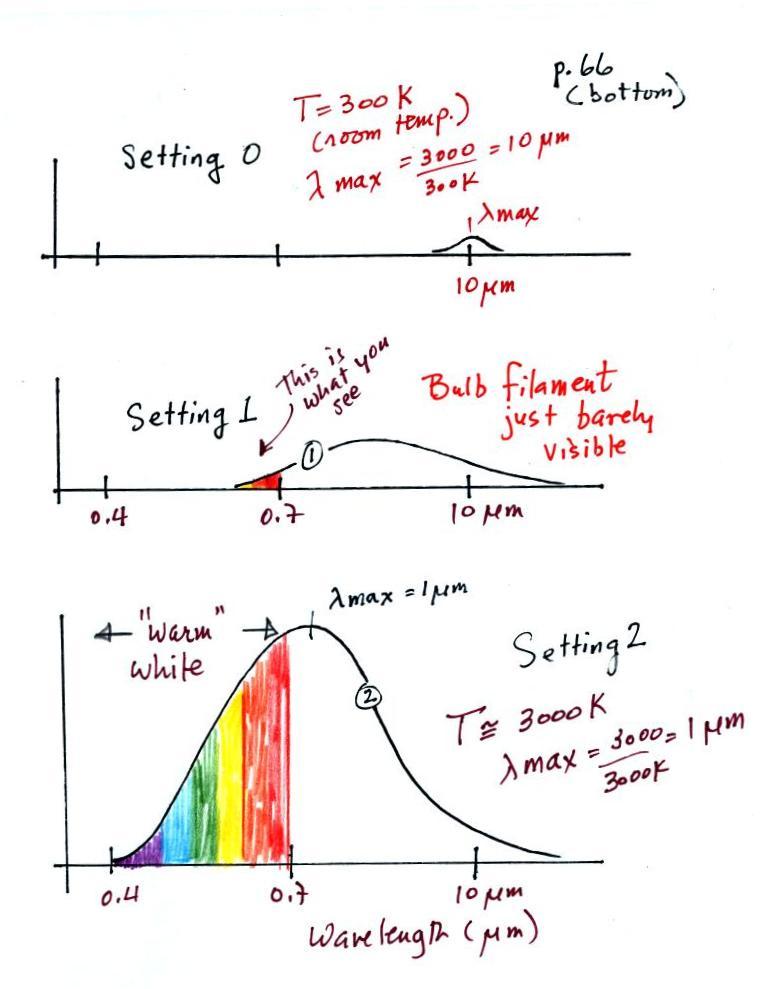 p.66
(bottom)
T = 300 K
(room temp.)
Setting 0
λ max = 3000/300K = 10 μm
λmax
10 μm
This is
what you
see
Setting 1
Bulb filament
just barely
visible
①
0.4
0.7
10 μm
λmax = 1μm
"warm"
white
Setting 2
②
T ≅ 3000 K
λ max = 3000/3000K = 1 μm
0.4
0.7
10 μm
Wavelength (μm)